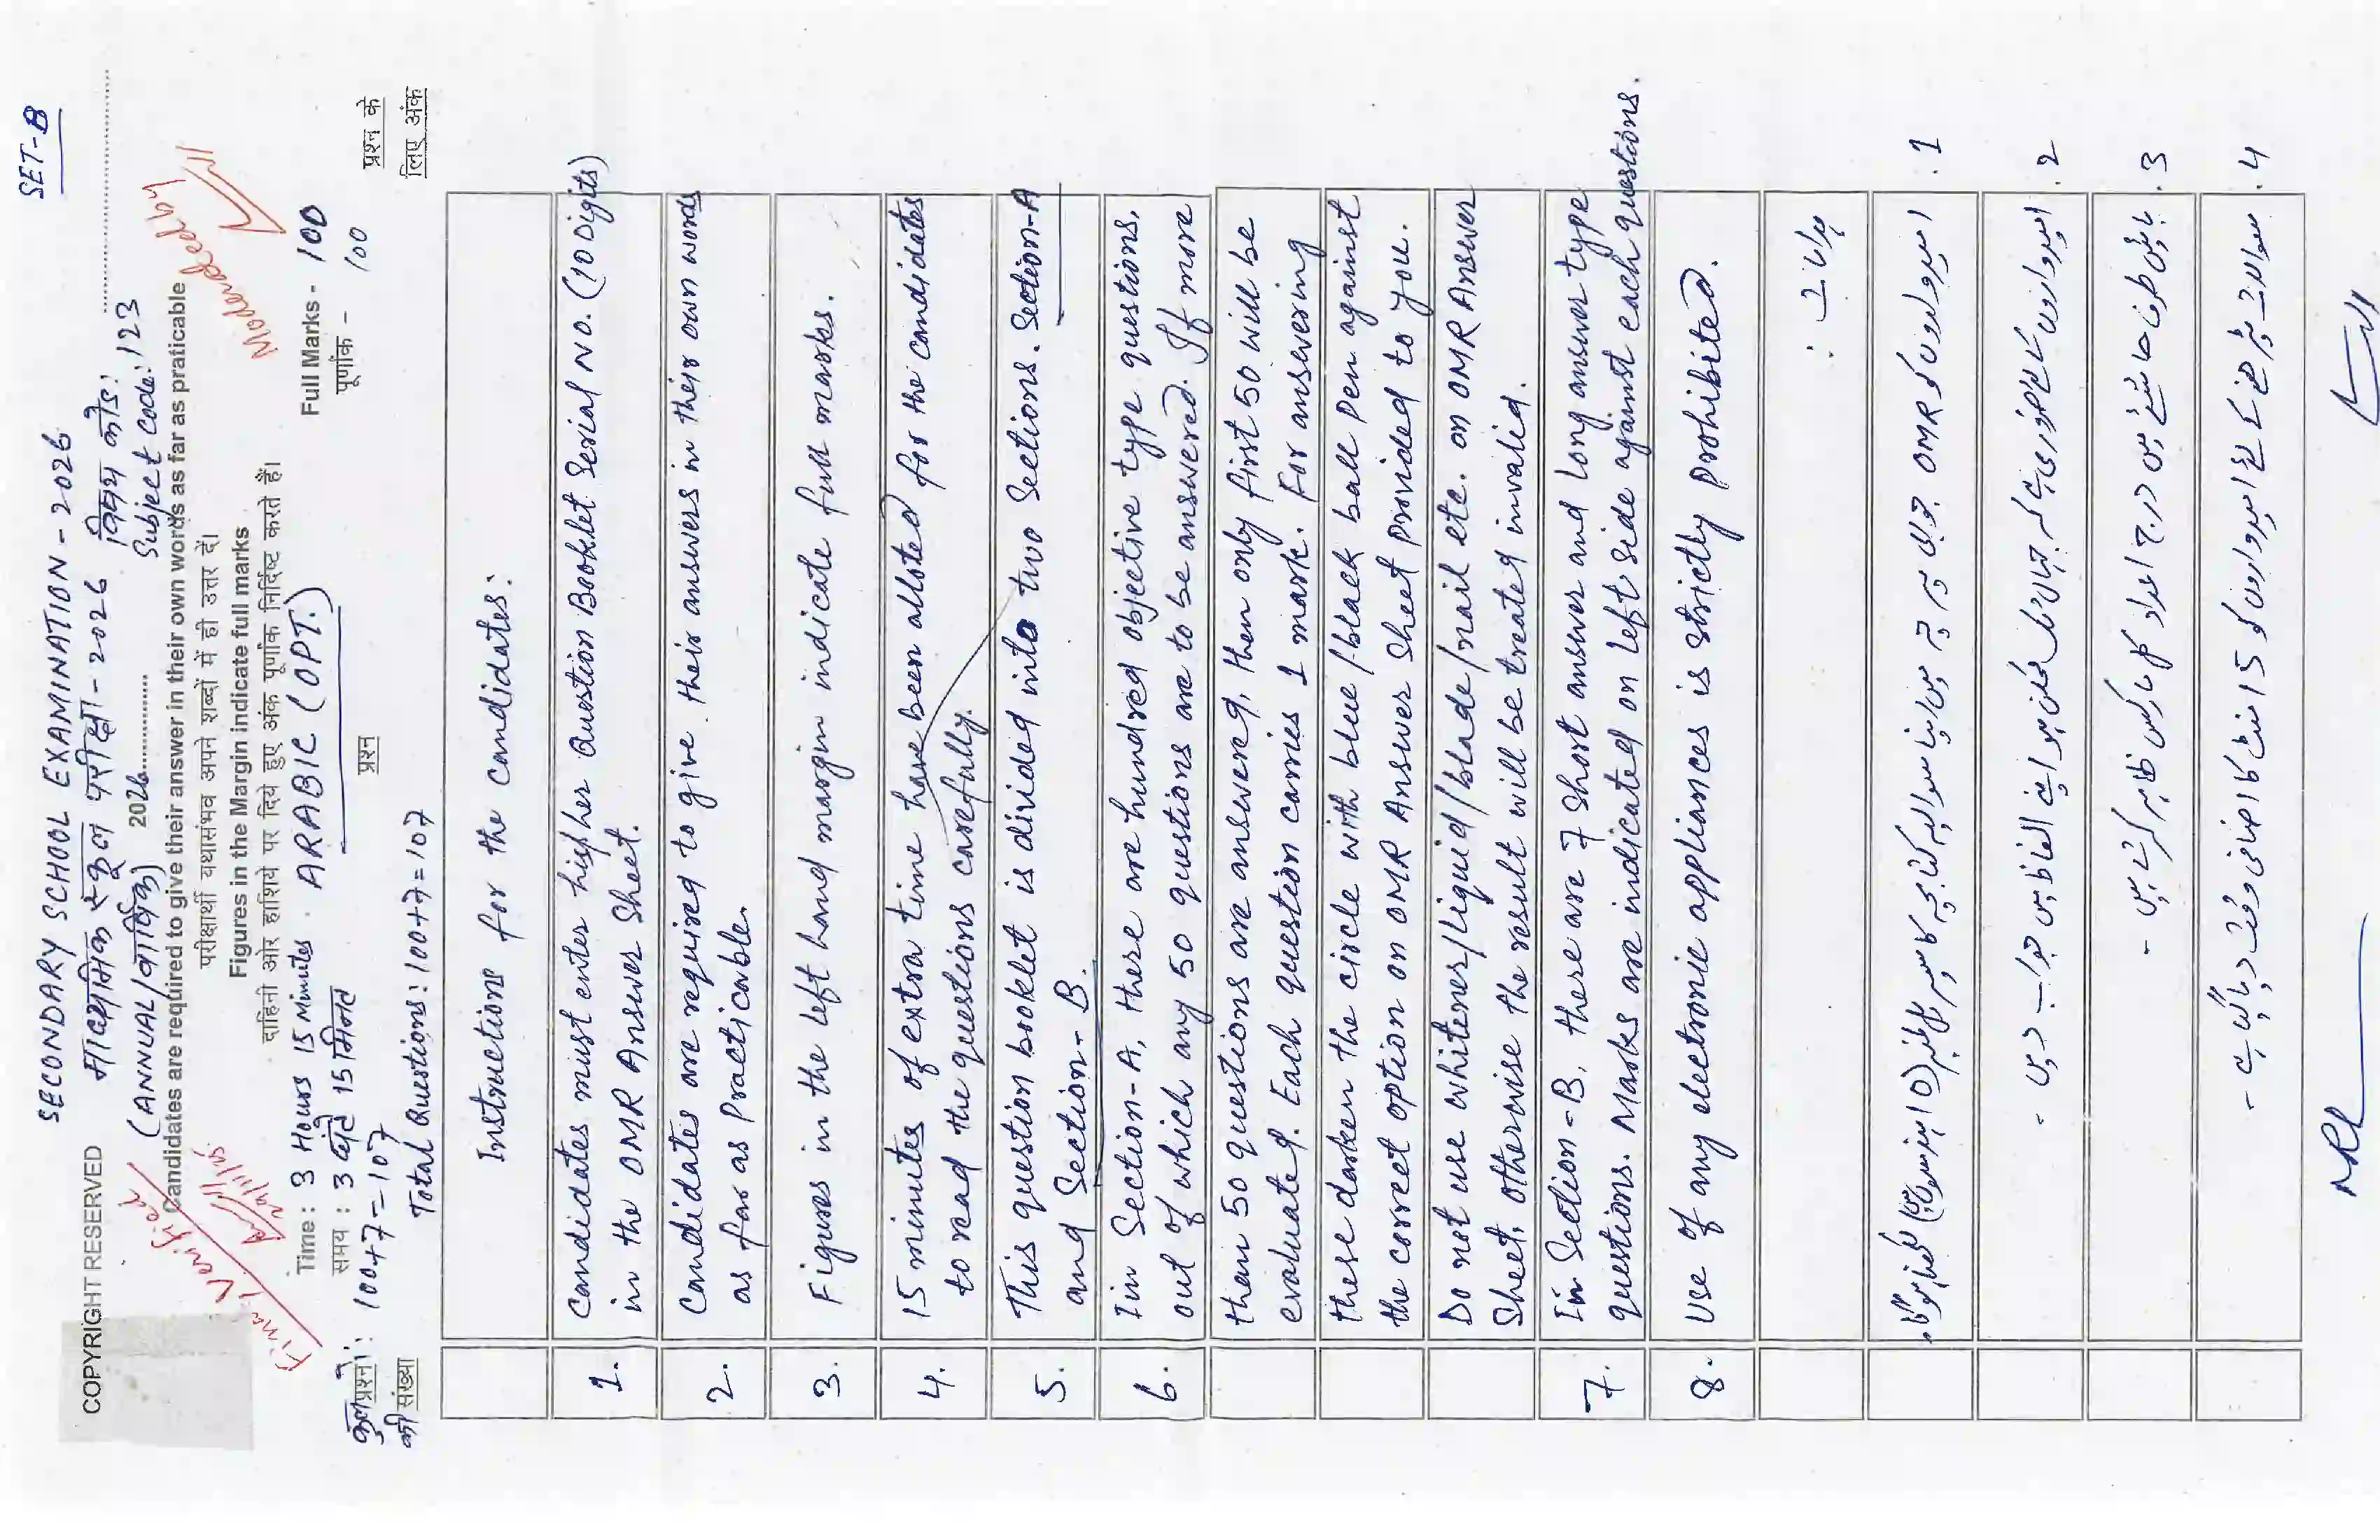 SET-B
SECONDARY SCHOOL EXAMINATION - 2026
COPYRIGHT RESERVED
माध्यमिक स्कूल परीक्षा - 2026
विषय कोड:
(ANNUAL/वार्षिक) 2026
Subject Code: 123
Candidates are required to give their answer in their own words as far as praticable
परीक्षार्थी यथासंभव अपने शब्दों में ही उत्तर दें।
Figures in the Margin indicate full marks
दाहिनी ओर हाशिये पर दिये हुए अंक पूर्णांक निर्दिष्ट करते हैं।
Final Verified
Moderated by
Time: 3 Hours 15 Minutes
ARABIC (OPT.)
Full Marks - 100
समय : 3 घंटे 15 मिनट
पूर्णांक - 100
कुल प्रश्नों: 100+7=107
की संख्या
Total Questions: 100+7=107
प्रश्न
प्रश्न के
लिए अंक
Instructions for the candidates:
1. Candidates must enter his/her Question Booklet Serial No. (10 Digits)
in the OMR Answer Sheet.
2. Candidates are required to give their answers in their own words
as far as Practicable.
3. Figures in the left hand margin indicate full marks.
4. 15 minutes of extra time have been alloted for the candidates
to read the questions carefully.
5. This question booklet is divided into two Sections. Section-A
and Section-B.
6. In Section-A, there are hundred objective type questions,
out of which any 50 questions are to be answered. If more
than 50 questions are answered, then only first 50 will be
evaluated. Each question carries 1 mark. For answering
these darken the circle with blue/black ball Pen against
the correct option on OMR Answer Sheet provided to you.
Do not use whitener/liquid/blade/nail etc. on OMR Answer
Sheet, otherwise the result will be treated invalid.
7. In Section-B, there are 7 Short answer and long answer type
questions. Marks are indicated on left side against each questions.
8. Use of any electronic appliances is strictly prohibited.
ہدایات :
1. امیدواروں کو OMR جوابی پرچہ میں اپنا سوالیہ کتابچہ کا سیریل نمبر (10 ہندسوں) لکھنا ہوگا۔
2. امیدواروں کے لئے ضروری ہے کہ جہاں تک ممکن ہو اپنے الفاظ میں جواب دیں -
3. بائیں طرف حاشئے میں درج اعداد کل مارکس ظاہر کرتے ہیں -
4. سوالات پڑھنے کے لئے امیدواروں کو 15 منٹ کا اضافی وقت دیا گیا ہے -